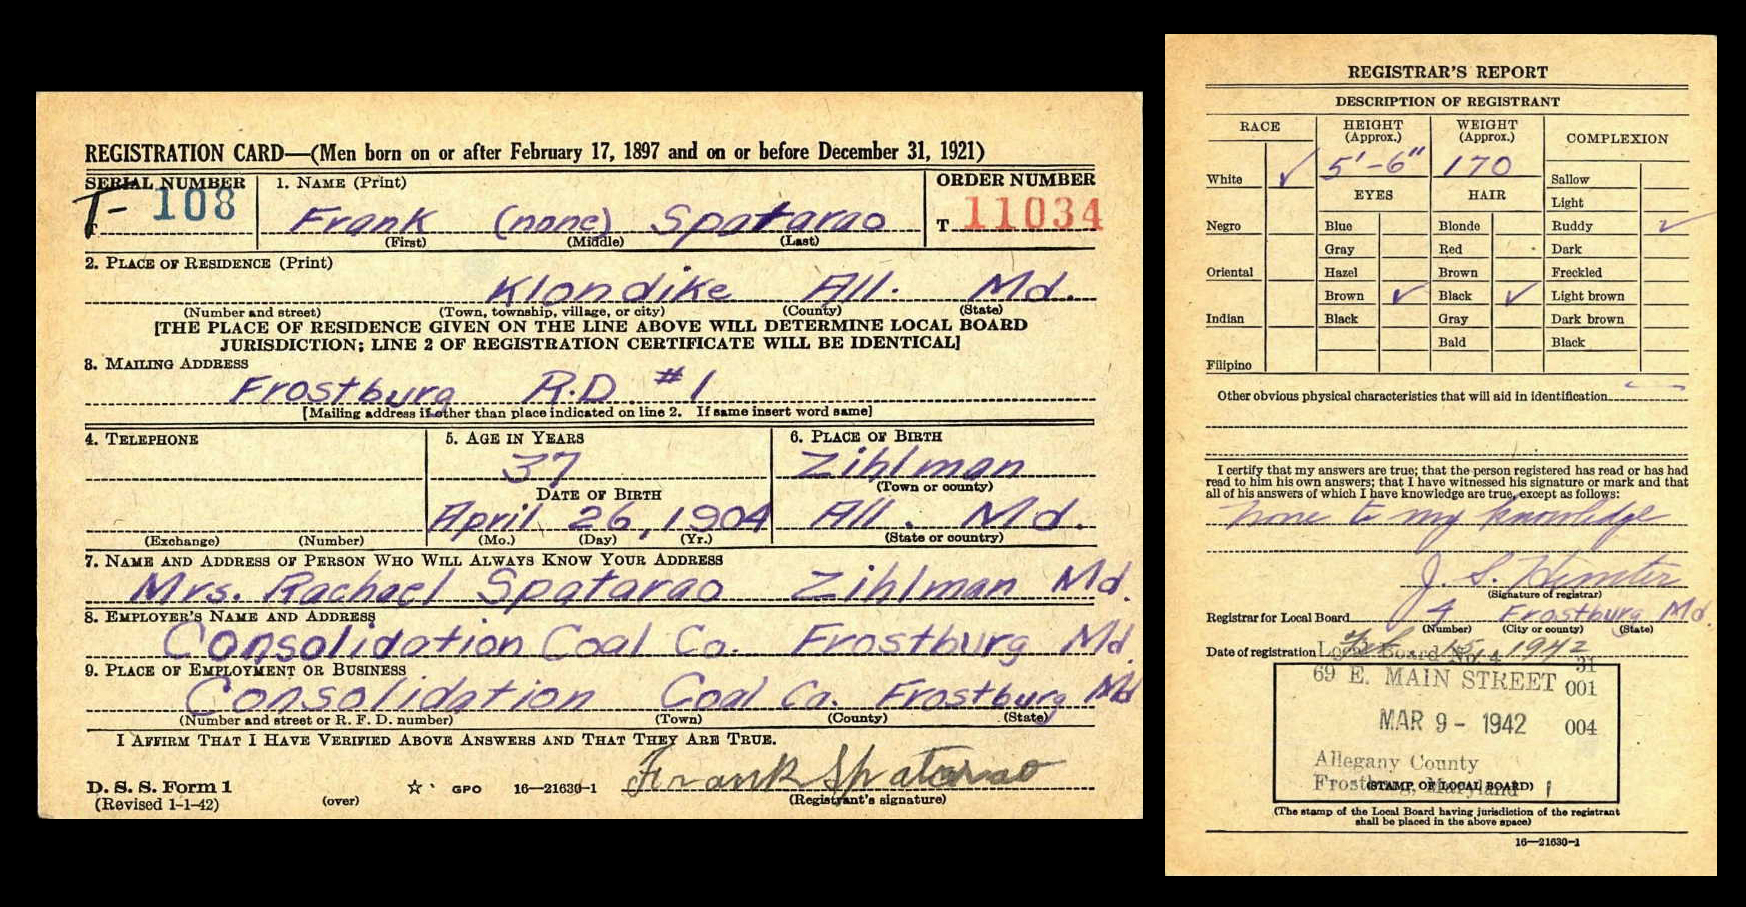 REGISTRATION CARD—(Men born on or after February 17, 1897 and on or before December 31, 1921)
SERIAL NUMBER
T- 108
T
1. NAME (Print)
Frank (none) Spatarao
(First) (Middle) (Last)
ORDER NUMBER
T 11034
2. PLACE OF RESIDENCE (Print)
Klondike All. Md.
(Number and street) (Town, township, village, or city) (County) (State)
[THE PLACE OF RESIDENCE GIVEN ON THE LINE ABOVE WILL DETERMINE LOCAL BOARD
JURISDICTION; LINE 2 OF REGISTRATION CERTIFICATE WILL BE IDENTICAL]
3. MAILING ADDRESS
Frostburg R.D. #1
[Mailing address if other than place indicated on line 2. If same insert word same]
4. TELEPHONE
(Exchange) (Number)
5. AGE IN YEARS
37
DATE OF BIRTH
April 26, 1904
(Mo.) (Day) (Yr.)
6. PLACE OF BIRTH
Zihlman
(Town or county)
All. Md.
(State or country)
7. NAME AND ADDRESS OF PERSON WHO WILL ALWAYS KNOW YOUR ADDRESS
Mrs. Rachael Spatarao Zihlman Md.
8. EMPLOYER'S NAME AND ADDRESS
Consolidation Coal Co. Frostburg Md.
9. PLACE OF EMPLOYMENT OR BUSINESS
Consolidation Coal Co. Frostburg Md
(Number and street or R. F. D. number) (Town) (County) (State)
I AFFIRM THAT I HAVE VERIFIED ABOVE ANSWERS AND THAT THEY ARE TRUE.
Frank Spatarao
D. S. S. Form 1
(Revised 1-1-42)
(over)
GPO 16—21630-1
(Registrant's signature)
REGISTRAR'S REPORT
DESCRIPTION OF REGISTRANT
RACE
HEIGHT
(Approx.)
WEIGHT
(Approx.)
COMPLEXION
White ✓
5'-6"
170
Sallow
EYES
HAIR
Light
Negro
Blue
Blonde
Ruddy ✓
Gray
Red
Dark
Oriental
Hazel
Brown
Freckled
Brown ✓
Black ✓
Light brown
Indian
Black
Gray
Dark brown
Bald
Black
Filipino
Other obvious physical characteristics that will aid in identification
I certify that my answers are true; that the person registered has read or has had
read to him his own answers; that I have witnessed his signature or mark and that
all of his answers of which I have knowledge are true, except as follows:
none to my knowledge
J. S.
(Signature of registrar)
Registrar for Local Board 4 Frostburg Md.
(Number) (City or county) (State)
Date of registration Feb. 15, 1942
Local Board No. 4 31
69 E. MAIN STREET 001
MAR 9 - 1942 004
Allegany County
Frostburg, Maryland
(STAMP OF LOCAL BOARD)
(The stamp of the Local Board having jurisdiction of the registrant
shall be placed in the above space)
16—21630-1